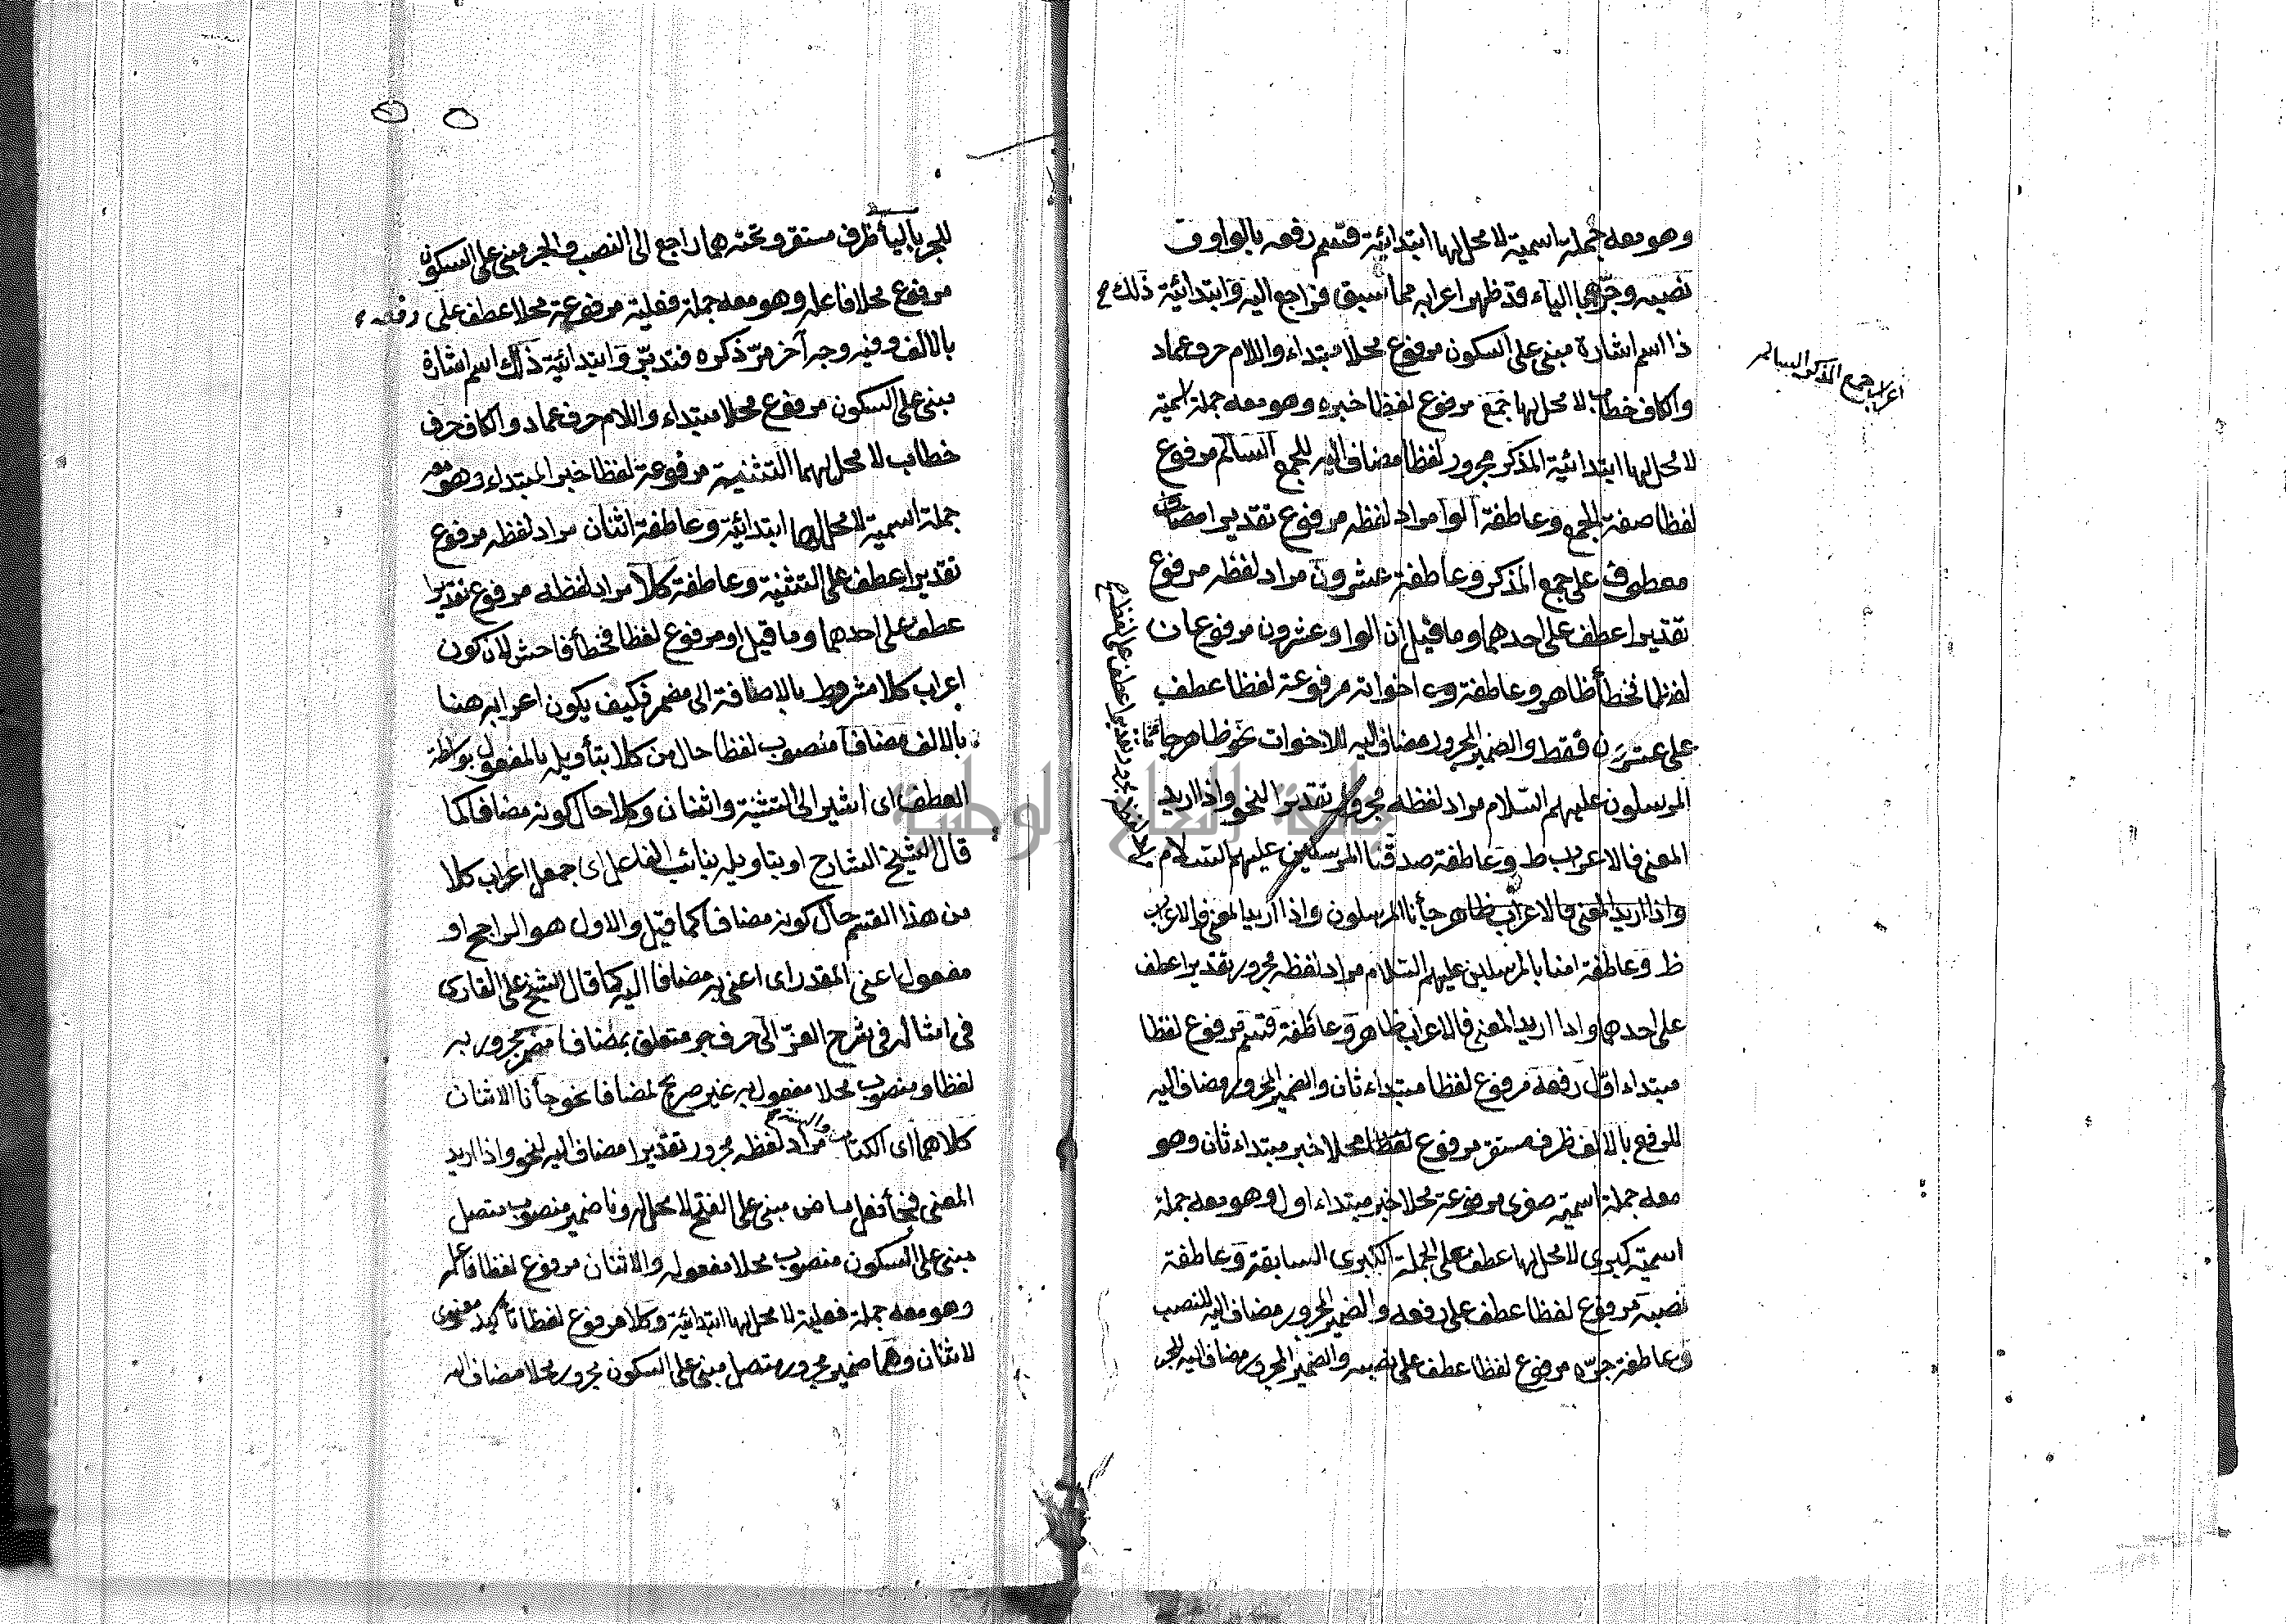 وهو معه جملة اسمية لا محل لها ابتدائية فقسم رفعه بالواو و
نصبه وجرهما بالياء قد ظهر اعرابه مما سبق فراجع اليه وابتدائية ذلك
ذا اسم اشارة مبنى على السكون مرفوع محلا مبتداء واللام حرف عماد
والكاف خطاب لا محل لها جمع مرفوع لفظا خبره وهو معه جملة اسمية
لا محل لها ابتدائية المذكر مجرور لفظا مضاف اليه للجمع السالم مرفوع
لفظا صفة الجمع وعاطفة الوا مراد لفظه مرفوع تقديرا مضاف
معطوف على جمع المذكر وعاطفة عشرون مراد لفظه مرفوع
تقديرا عطف على احدهما وما قيل ان الوا وعشرون مرفوعان
لفظا فخطأ ظاهر وعاطفة واخواته مرفوعة لفظا عطف
على عشرين فقط والضمير المجرور مضاف اليه للاخوات نحو ظاهر جائنا
المرسلون عليهم السلام مراد لفظه مجرور تقديرا النحو واذا اريد
المعنى فالاعراب ظ وعاطفة صدقنا المرسلين عليهم السلام
واذا اريد المعنى فالاعراب ظاهر جأنا المرسلون واذا اريد المعنى فالاعراب
ظ وعاطفة امنا بالمرسلين عليهم السلام مراد لفظه مجرور تقديرا عطف
على احدهما واذا اريد المعنى فالاعراب ظاهر وعاطفة قسم مرفوع لفظا
مبتداء اول رفعه مرفوع لفظا مبتداء ثان والضمير المجرور مضاف اليه
للرفع بالالف ظرف مستقر مرفوع محلا خبر مبتداء ثان وهو
معه جملة اسمية صغرى مرفوعة محلا خبر مبتداء اول وهو معه جملة
اسمية كبرى لا محل لها عطف على الجملة الكبرى السابقة وعاطفة
نصبه مرفوع لفظا عطف على رفعه والضمير المجرور مضاف اليه للنصب
وعاطفة جره مرفوع لفظا عطف على نصبه والضمير المجرور مضاف اليه للجر
اعراب جمع المذكر السالم
للجر بالياء ظرف مستقر وتحته هما راجع الى النصب والجر مبنى على السكون
مرفوع محلا فاعله وهو معه جملة فعلية مرفوعة محلا عطف على رفعه
بالالف وفيه وجه آخر مر ذكره فتدبر وابتدائية ذلك اسم اشارة
مبنى على السكون مرفوع محلا مبتداء واللام حرف عماد والكاف حرف
خطاب لا محل لهما التثنية مرفوعة لفظا خبر المبتداء وهو معه
جملة اسمية لا محل لها ابتدائية وعاطفة اثنان مراد لفظه مرفوع
تقديرا عطف على التثنية وعاطفة كلا مراد لفظه مرفوع تقديرا
عطف على احدهما وما قيل او مرفوع لفظا فخطأ فاحش لان كون
اعراب كلا مشروط بالاضافة الى مضمر فكيف يكون اعرابه هنا
بالالف مضافا منصوب لفظا حال من كلا بتأويله بالمفعول بواسطة
العطف اى اشير الى التثنية واثنان وكلا حال كونه مضافا كما
قال الشيخ الشارح او بتاويله بنائب الفاعل اى جعل اعراب كلا
من هذا القسم حال كونه مضافا كما قيل والاول هو الراجح او
مفعول اعنى المقدر اى اعنى به مضافا اليه كما قال الشيخ على القارى
فى امثاله فى شرح العز الى حرف جر متعلق بمضافا مضمر مجرور به
لفظا ومنصوب محلا مفعول به غير صريح لمضافا نحو جأنا الاثنان
كلاهما اى الكتاب والسنة مراد لفظه مجرور تقديرا مضاف اليه لنحو واذا اريد
المعنى فجأ فعل ماض مبنى على الفتح لا محل له ونا ضمير منصوب متصل
مبنى على السكون منصوب محلا مفعوله والاثنان مرفوع لفظا فاعله
وهو معه جملة فعلية لا محل لها ابتدائية وكلا مرفوع لفظا تأكيد معنوى
لاثنان وهما ضمير مجرور متصل مبنى على السكون مجرور محلا مضاف اليه